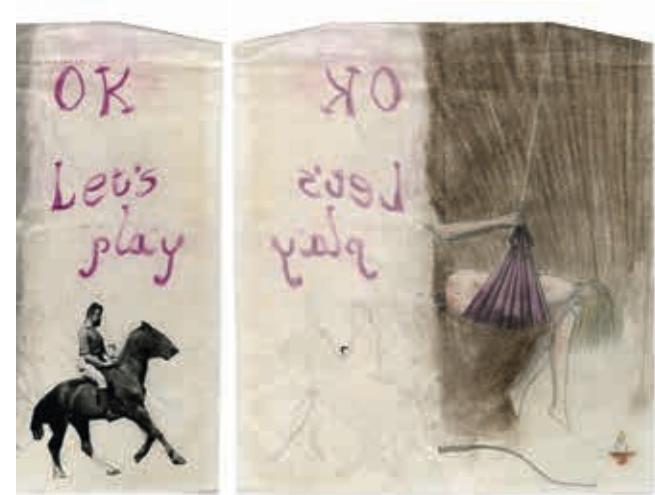 OK
Let's
play
OK
Let's
play